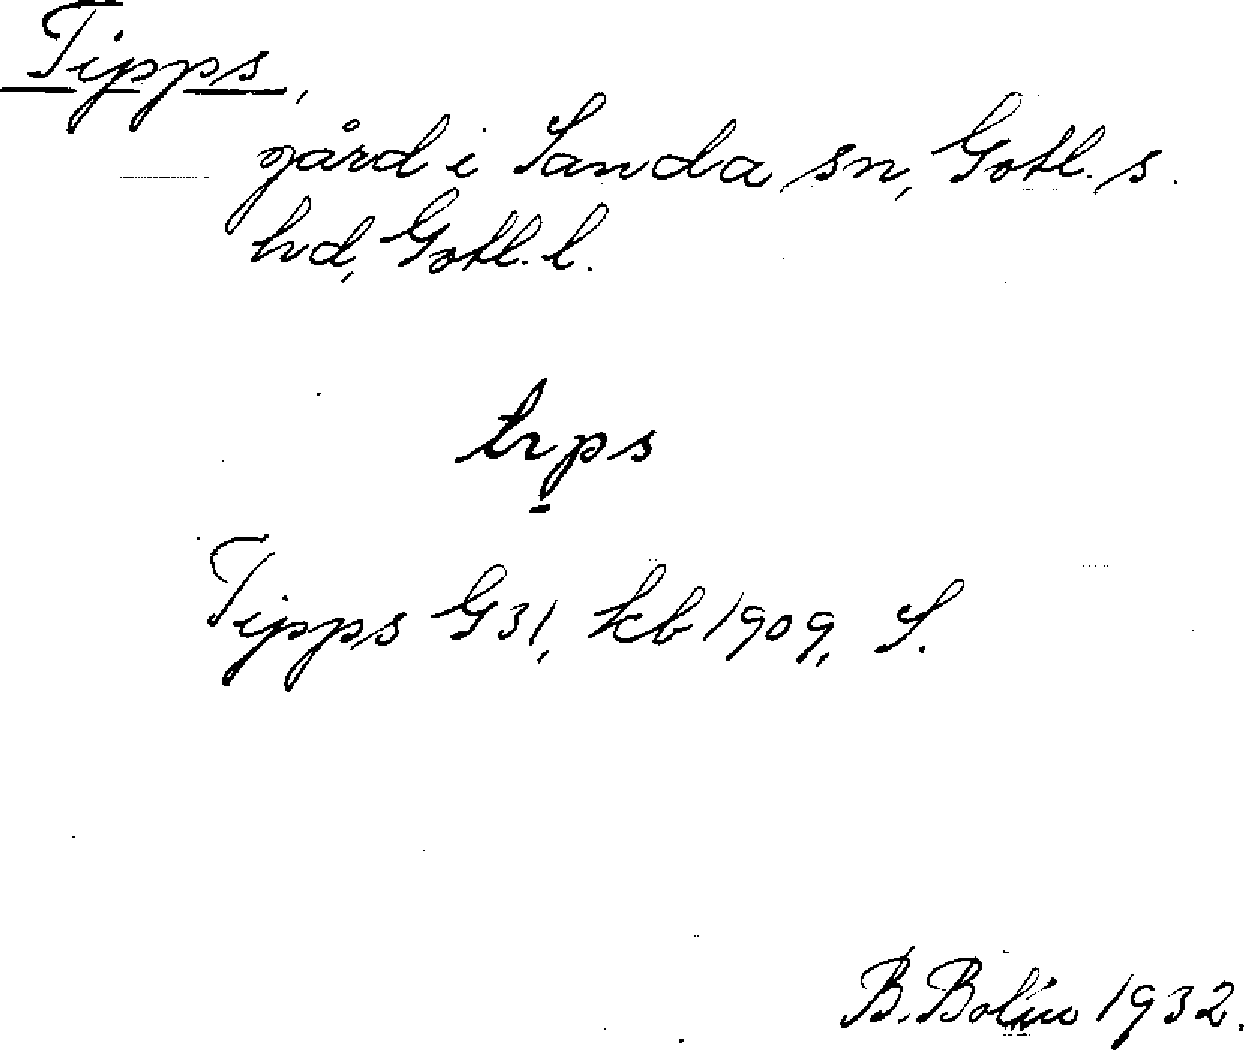 Tipps,
gård i Sanda sn, Gotl. s.
hd, Gotl. l.
Tipps G31, kb 1909, S.
B. Bolin 1932.